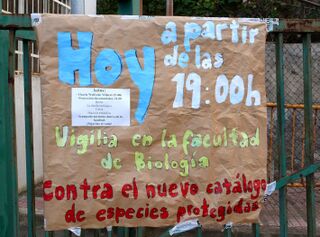 Hoy
a partir
de las
19:00h
Vigilia en la facultad
de Biología
Contra el nuevo catálogo
de especies protegidas